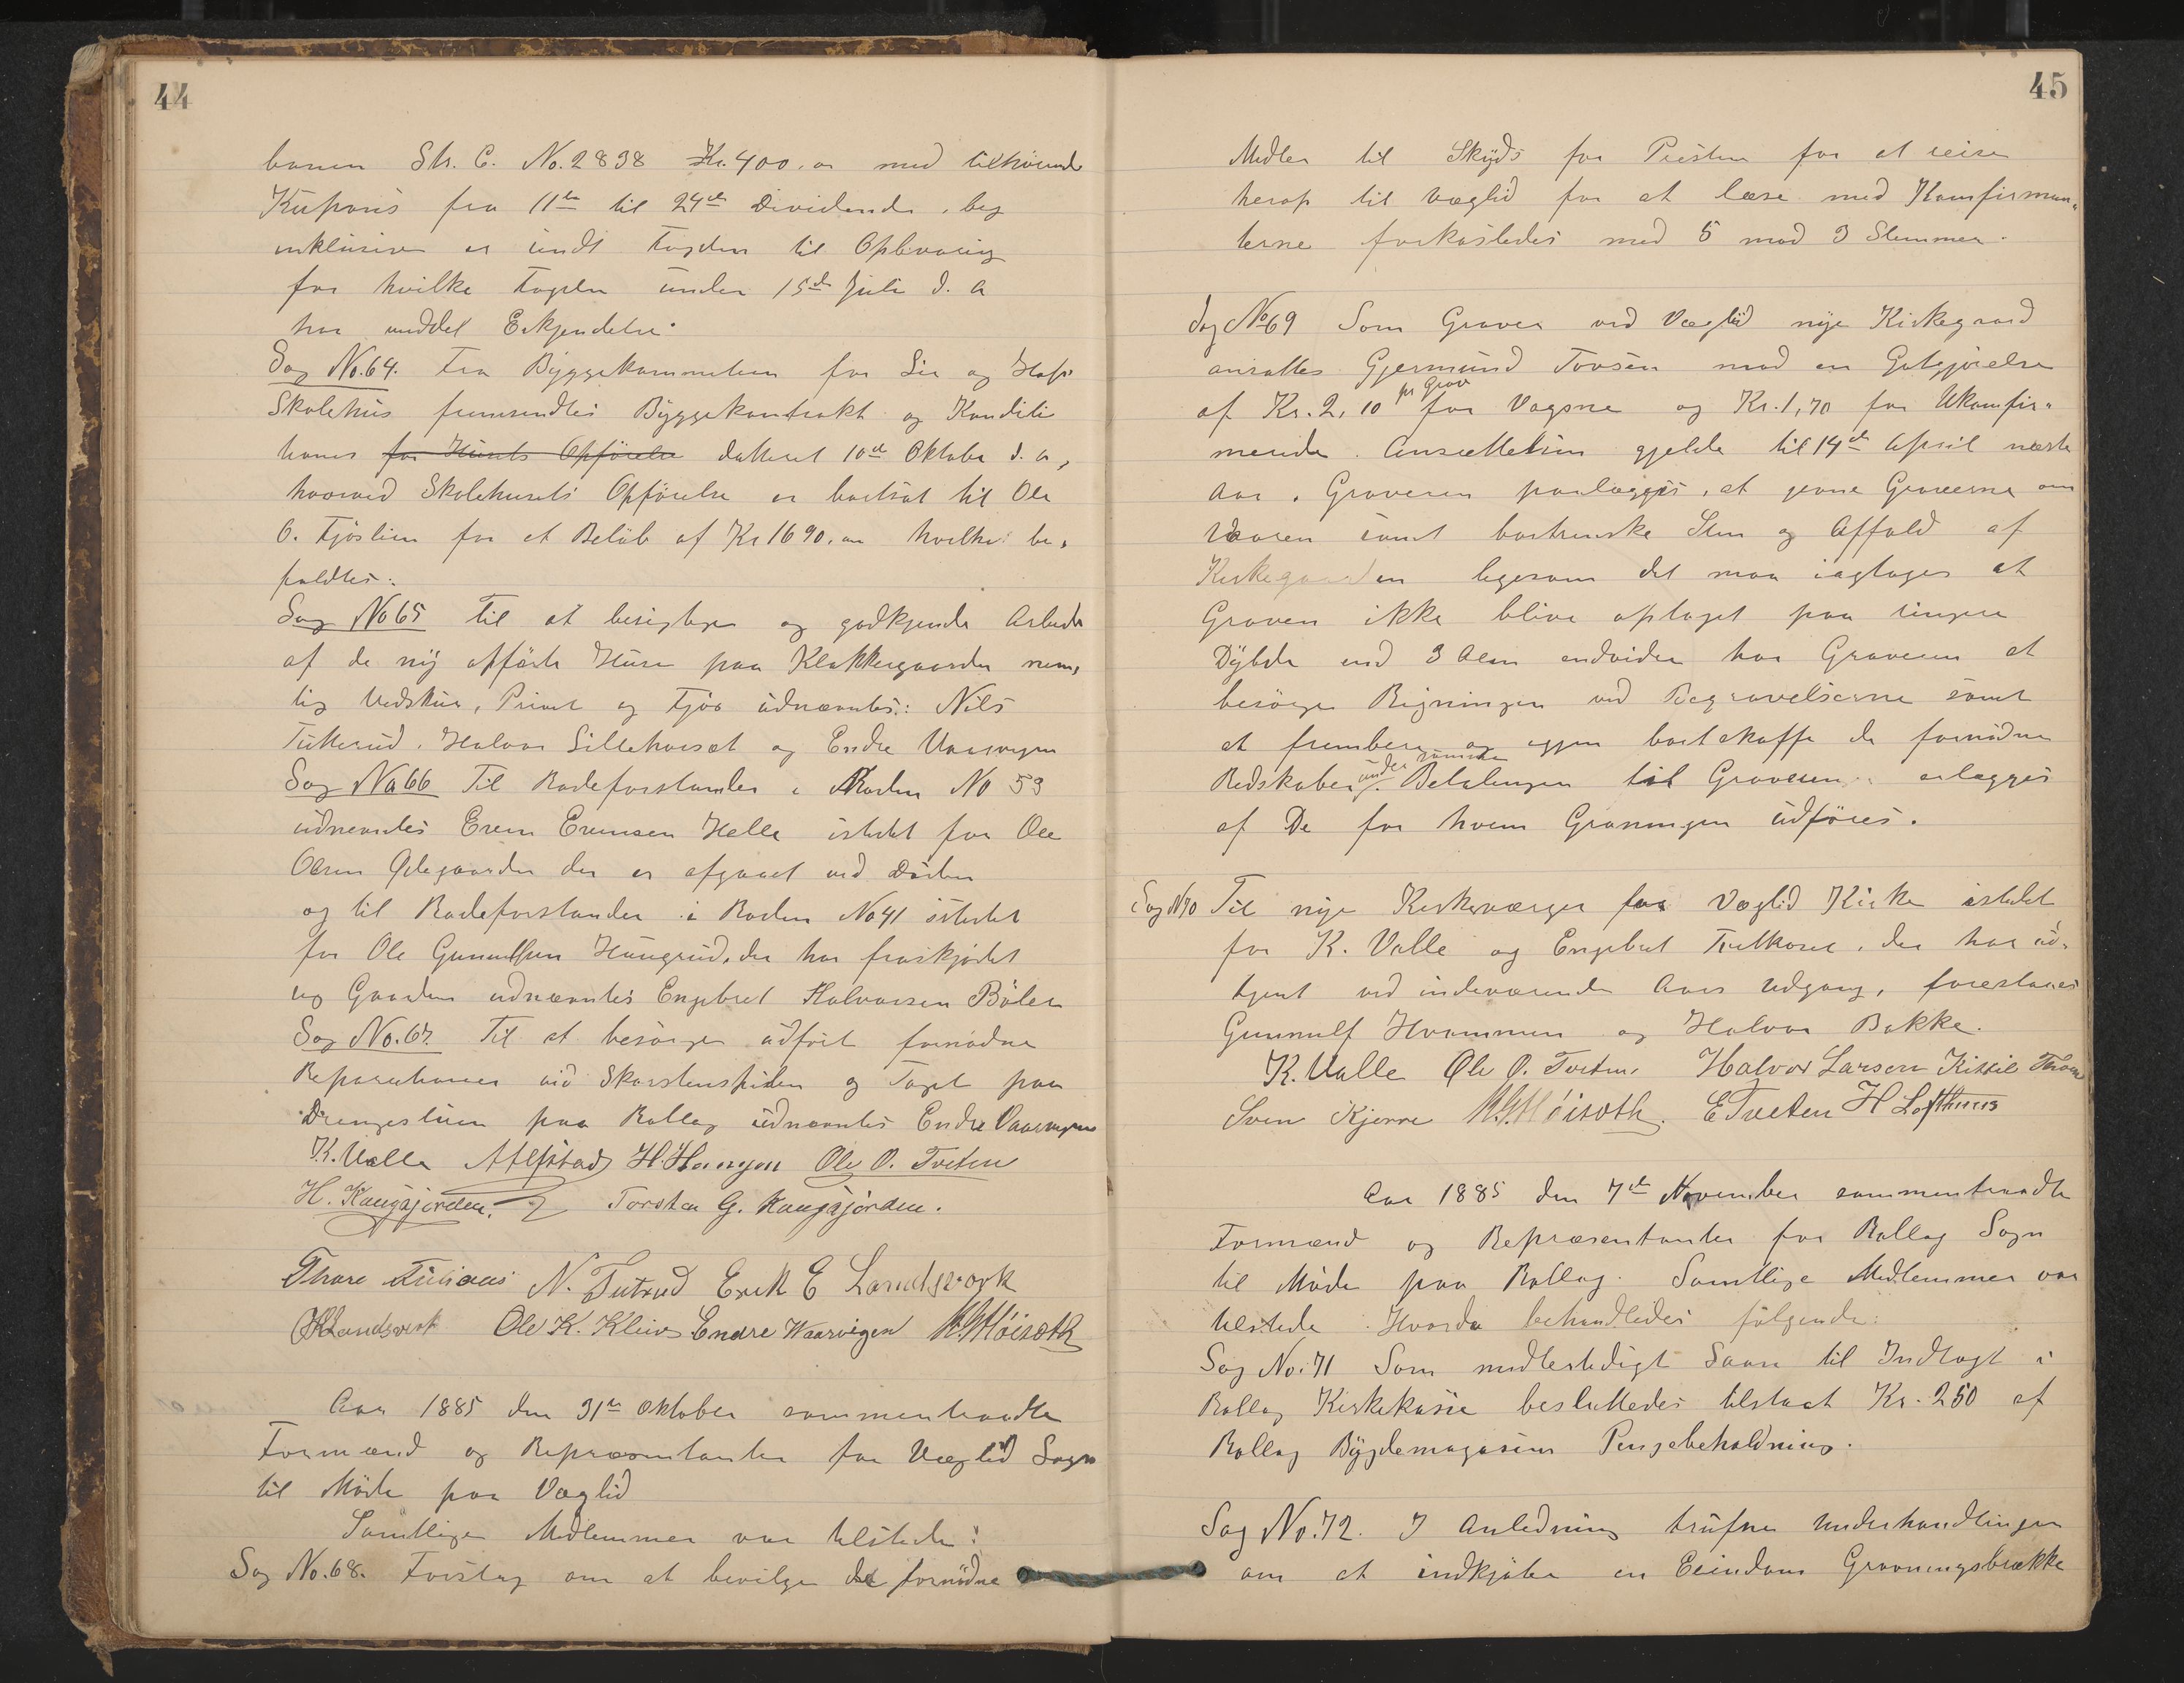 44
banen Str. C. No. 2838 Kr. 400.00 med tilhørende
Kupons fra 11te til 24de Dividende, beg
inklusive er sendt Fogden til Opbevaring
for hvilke Fogden under 15de Juli d. A
har meddel Erkjendelse.
Sag No. 64. Fra Byggekommiteen for Lie og
Skolehus fremsendtes Byggekontrakt og Konditi
tioner for Husets Opførelse datteret 10de Oktober d. A,
hvorved Skolehusets Opførelse er bortsat til Ole
O. Fjøslien for et Beløb af Kr 1690.00 hvilket bi-
faldtes.
Sag No 65 Til at besigtige og godkjende Arbeidet
af de ny opførte Huse paa Klokkergaarden nem-
lig Vedskur, Privet og Fjøs udnævntes: Nils
Tutterud, Halvor Sillehorset og Endre Vaarvigen
Sag No 66 Til Rodeforstander i Roden No 53
udnævntes Even Evensen Helle istedet for Ole
Olsen Ødegaarden der er afgaaet ved Døden
og til Rodeforstander i Roden No 41 istedet
for Ole Gunnulfsen Haugrud, der har fraskjødet
sig Gaarden udnævntes Engebret Halvorsen Bølen
Sag No. 67. Til at besørge udført fornødne
Reparationer ved Skorstenspiben og Taget paa
Drengestuen paa Rollag udnævntes Endre Vaarvigen
K. Valle H. Haugen Ole O. Tveten
H. Kaugsjorden. Torsten G. Kaugsjorden.
Thore N. Tutrud Erik E Landsverk
Landsverk Ole K. Kleiv Endre Waarvigen Høiseth
Aar 1885 den 31te Oktober sammentraadte
Formænd og Repræsentanter for Væglid Sogn
til Møde paa Væglid
Samtlige Medlemmer var tilstede:
Sag No. 68. Forslag om at bevilge de fornødne
45
Midler til Skyds for Presten for at reise
herop til Væglid for at læse med Komfirman-
terne forkastedes med 5 mod 3 Stemmer.
Sag No 69 Som Graver ved Væglid nye Kirkegaard
ansattes Gjermund Tovsen mod en Godtgjørelse
af Kr. 2,10 pr Grav for Vogsne og Kr. 1,70 for Ukomfir-
merede. Ansættelsen gjelder til 14de April næste
Aar. Graveren paalægges, at jevne Gravene om
Vaaren samt bortrenske Sten og Affald af
Kirkegaarden ligesom det maa iagtages at
Graven ikke bliver optaget paa ringere
Dybde end 3 Alen endvidere har Graveren at
besørge Ringningen ved Begravelserne samt
at frembere og igjen bortskaffe de fornødne
Redskaber under samme. Betalingen til Graveren erlægges
af De for hvem Gravningen udføres.
Sag N 70 Til nye Kirkeværger for Væglid Kirke istedet
for K. Valle og Engebret der har ud-
tjent ved indeværende Aars Udgang, foreslaaes
Gunnulf Hvammen og Halvor Bakke.
K. Valle Ole O. Tveten Halvor Larsen Kittil
Sven Kjerre Høiseth. E Tveten H Lofthuus
Aar 1885 den 7de November sammentraadte
Formænd og Repræsentanter for Rollag Sogn
til Møde paa Rollag. Samtlige Medlemmer var
tilstede. Hvorda behandledes følgende:
Sag No. 71 Som midlertidigt Laan til Indtægt i
Rollag Kirkekasse besluttedes tilstaat Kr. 250 af
Rollag Bygdemagasins Pengebeholdning.
Sag No. 72. I Anledning trufne Underhandlinger
om at indkjøbe en Eiendom Gravningsbrække